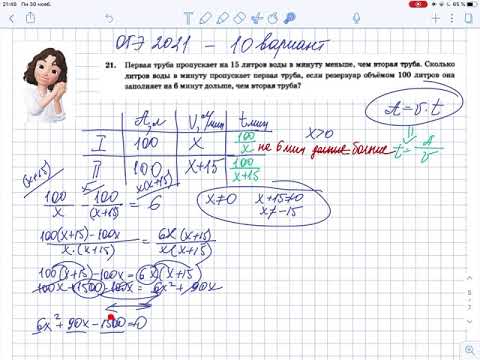 21:49 Пн 30 нояб.
65 %
ОГЭ 2021 – 10 вариант
21. Первая труба пропускает на 15 литров воды в минуту меньше, чем вторая труба. Сколько
литров воды в минуту пропускает первая труба, если резервуар объёмом 100 литров она
заполняет на 6 минут дольше, чем вторая труба?
A = v · t
A, л V, л/мин t мин
I 100 x 100/x
x>0
на 6 мин дольше больше
t = A/v
II 100 x+15 100/(x+15)
(x+15) x x(x+15)
100/x − 100/(x+15) = 6
x≠0 x+15≠0
x≠−15
(100(x+15)−100x)/(x·(x+15)) = 6x(x+15)/(x(x+15))
100(x+15)−100x = 6x(x+15)
100x+1500−100x = 6x²+90x
6x²+90x−1500=0